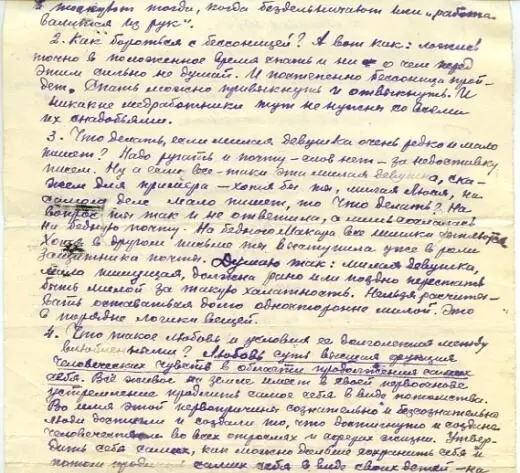 и тоскуют тогда, когда бездельничают или „работа
валится из рук".
2. Как бороться с бессонницей? А вот как: ложись
точно в положенное время спать и ни о чем перед
этим сильно не думай. И постепенно бессоница прой-
дет. Спать можно привыкнуть и отвыкнуть. И
никакие медработники тут не нужны со всеми
их снадобьями.
3. Что делать, если милая девушка очень редко и мало
пишет? Надо ругать и почту – слов нет – за недоставку
писем. Ну а если все-таки эта милая девушка, ска-
жем для примера – хотя бы ты, милая Люся, на
самом деле мало пишет, то что делать? На
вопрос ты так и не ответила, а лишь сослалась
на бедную почту. На бедного Макара все шишки
Хотя в другом письме ты выступила уже в роли
защитника почты. Думаю так: милая девушка,
мало пишущая, должна рано или поздно перестать
быть милой за такую халатность. Нельзя расчиты-
вать оставаться долго односторонне милой. Это
в порядке логики вещей.
4. Что такое любовь и условия ее долголетия между
влюбленными? Любовь суть высшая функция
человеческих чувств в области продолжения самих
себя. Всё живое на земле имеет в своей первооснове
устремление продлить самое себя в виде потомства.
Во имя этой первопричины сознательно и бессознательно
люди достигли и создали то, что достигнуто и создано
человечеством во всех отраслях и сферах жизни. Утвер-
дить себя самих, как можно дольше сохранить себя и
потом самих себя в виде своих детей – на